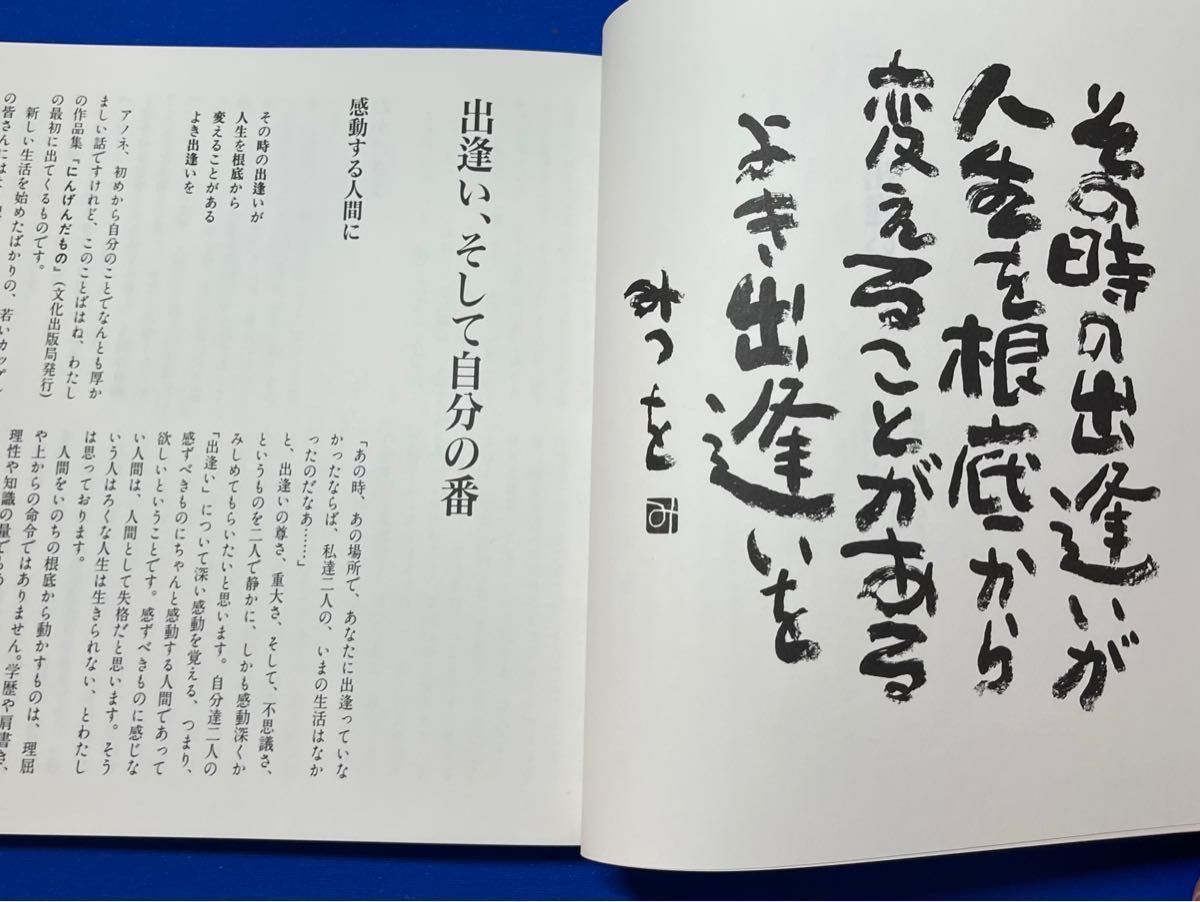 その時の出逢いが
人生を根底から
変えることがある
よき出逢いを
みつを
み
出逢い、そして自分の番
感動する人間に
その時の出逢いが
人生を根底から
変えることがある
よき出逢いを
アノネ、初めから自分のことでなんとも厚か
ましい話ですけれど、このことばはね、わたし
の作品集『にんげんだもの』(文化出版局発行)
の最初に出てくるものです。
新しい生活を始めたばかりの、若いカップル
の皆さんには
「あの時、あの場所で、あなたに出逢っていな
かったならば、私達二人の、いまの生活はなか
ったのだなあ……」
と、出逢いの尊さ、重大さ、そして、不思議さ、
というものを二人で静かに、しかも感動深くか
みしめてもらいたいと思います。自分達二人の
「出逢い」について深い感動を覚える、つまり、
感ずべきものにちゃんと感動する人間であって
欲しいということです。感ずべきものに感じな
い人間は、人間として失格だと思います。そう
いう人はろくな人生は生きられない、とわたし
は思っております。
人間をいのちの根底から動かすものは、理屈
や上からの命令ではありません。学歴や肩書き、
理性や知識の量でもあ